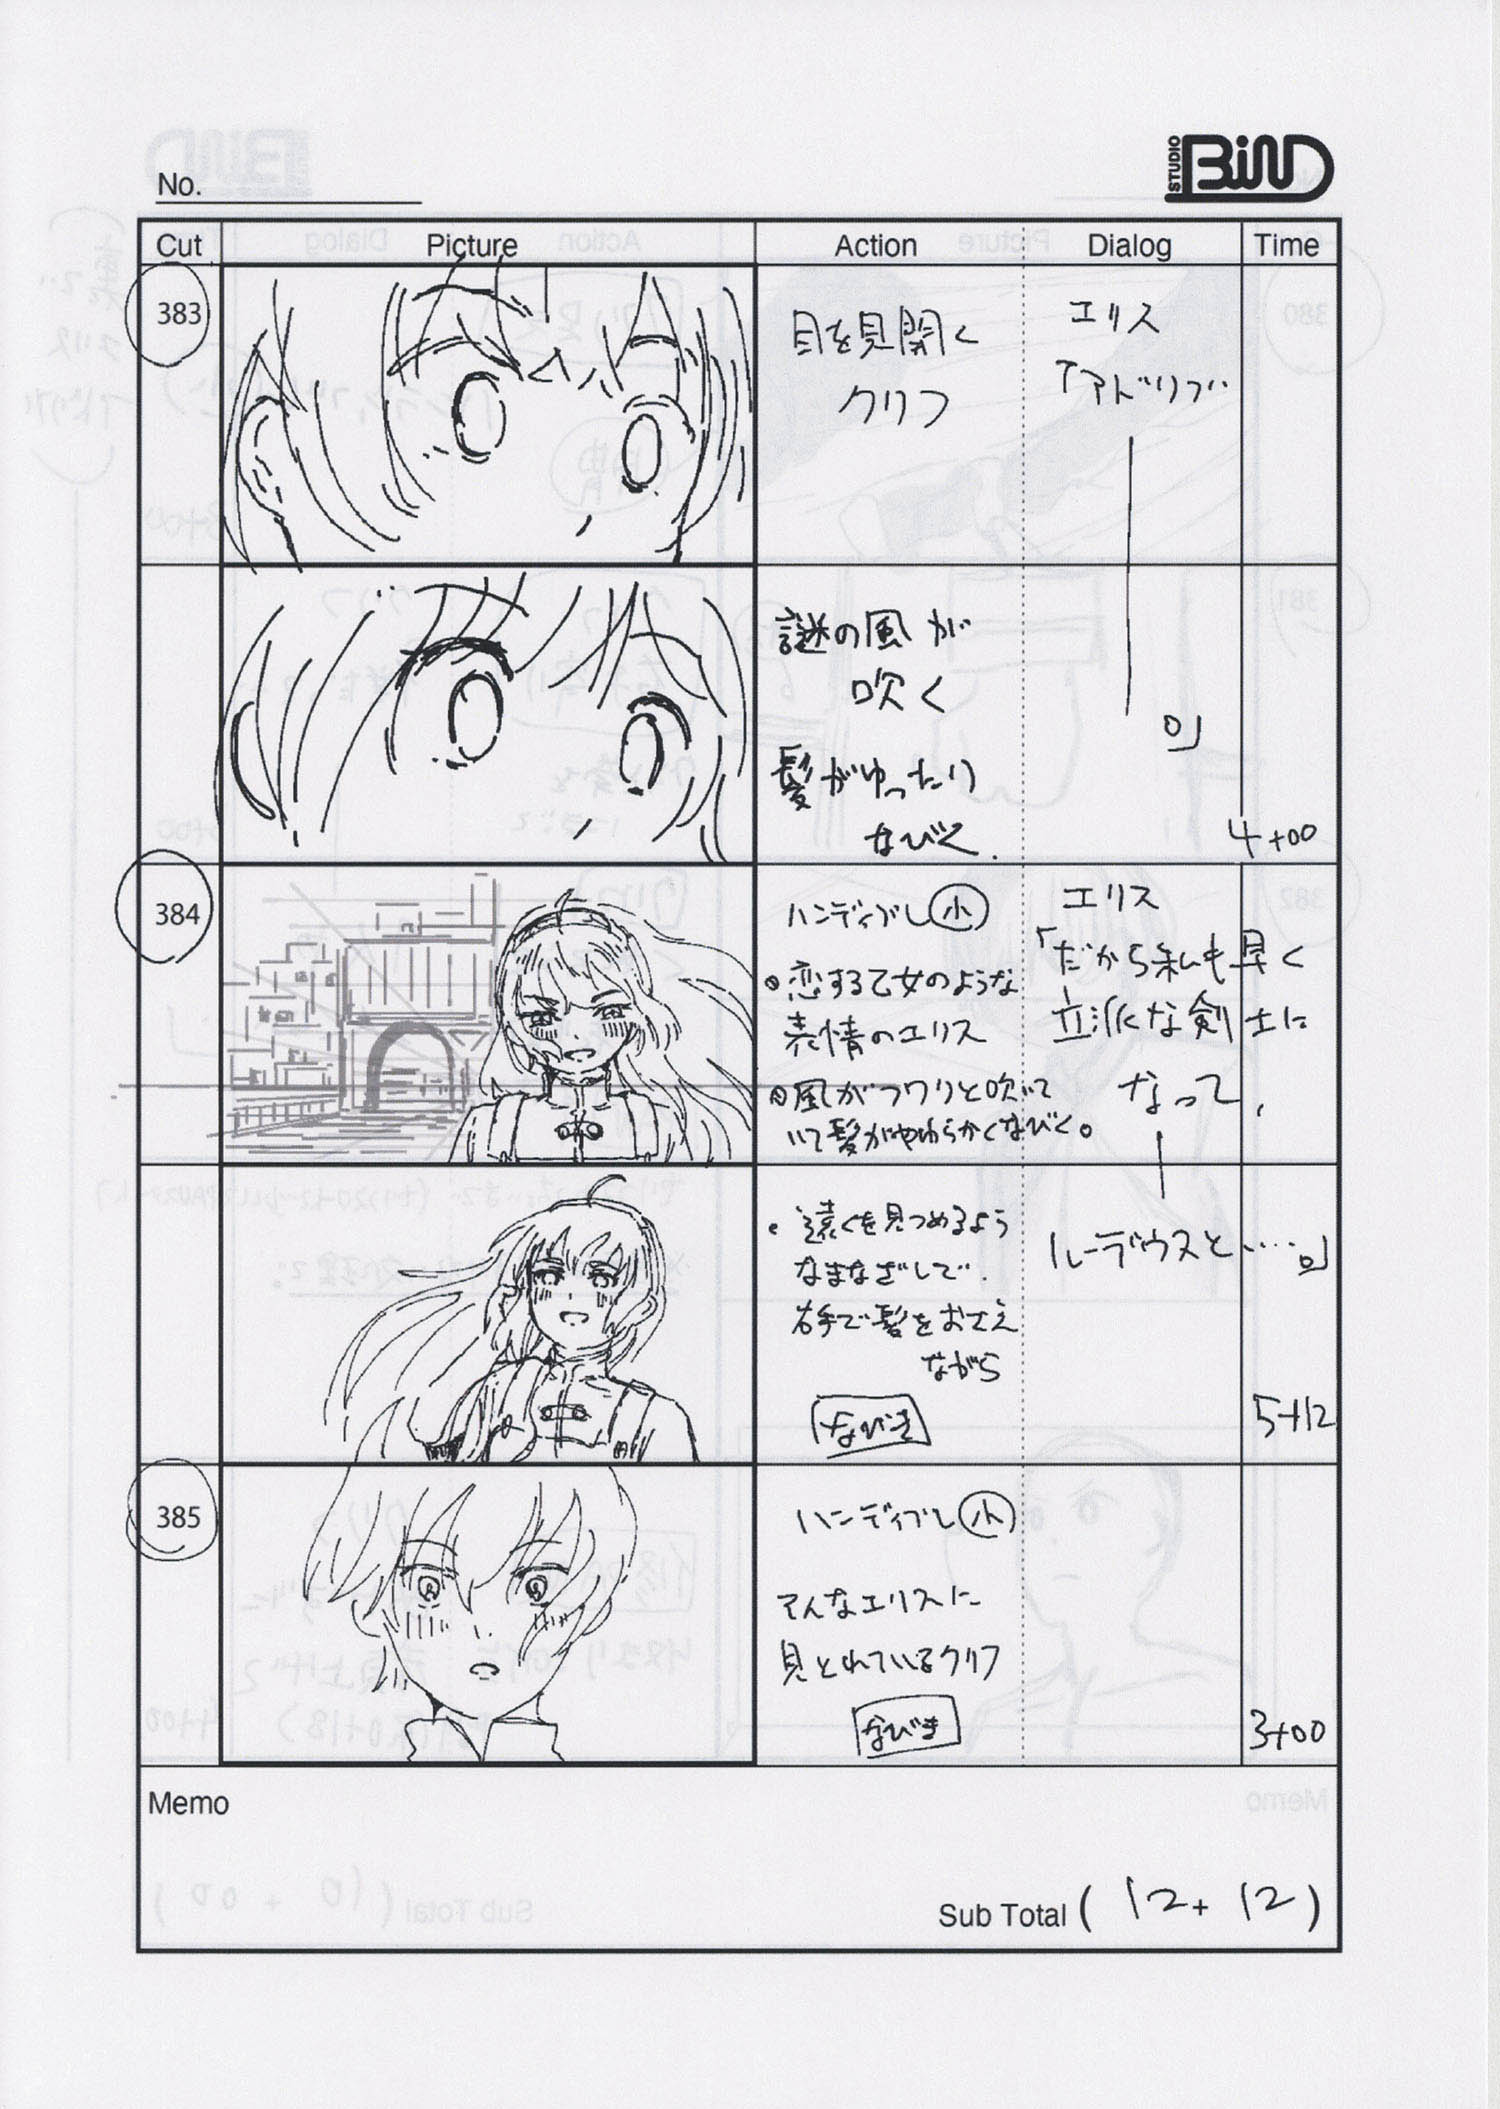 No.
STUDIO BiND
Cut Picture Action Dialog Time
383
目を見開く
クリフ
エリス
「アドリブ
謎の風が
吹く
髪がゆったり
なびく.
」
4+00
384
ハンディブレ 小
・恋する乙女のような
表情のエリス
・風がフワリと吹いて
いて髪がやわらかくなびく。
エリス
「だから私も早く
立派な剣士に
なって、
・遠くを見つめるよう
なまなざしで.
右手で髪をおさえ
ながら
なびき
ルーデウスと……」
5+12
385
ハンディブレ 小
そんなエリスに
見とれているクリフ
なびき
3+00
Memo
Sub Total ( 12+ 12 )